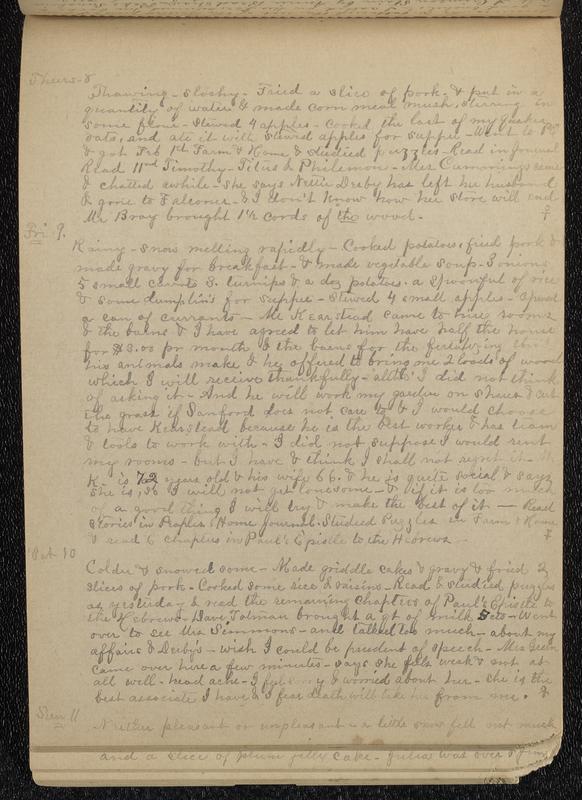 Thurs. 8
Thawing - sloshy - Fried a slice of pork - & put in a
quantity of water & made corn meal mush, stirring in
some flour - Stewed 4 apples - Cooked the last of my quaker
oats, and ate it with stewed apples for supper - Went to P.O.
& got Feb 1st Farm & Home & studied puzzles - Read in Journal
Read 11nd Timothy - Titus & Philemon - Mrs Cummings came
& chatted awhile - She says Nettie Derby has left her husband
& gone to Falconer - & I don't know how her store will end
Mr Bray brought 1½ cords of the wood.
Fri 9.
Rainy - snow melting rapidly - Cooked potatoes, fried pork &
made gravy for breakfast - & made vegetable soup - 3 onions
5 small carrots 3. turnips & a doz potatoes. a spoonful of rice
& some dumplins for supper - Stewed 4 small apples - opened
a can of currants - Mr Kearstead came to my rooms
& the barns & I have agreed to let him have half the house
for $3.00 per month & the barns for the
his animals make & he offered to bring me 2 loads of wood
which I will receive thankfully - altho' I did not think
of asking it - And he will work my garden on shares & cut
the grass if Sanford does not care to & I would choose
to have Kearstead because he is the best worker & has team
& tools to work with - I did not suppose I would rent
my rooms - but I have & think I shall not regret it - Mr
K - is 72 years old & his wife 66. & he is quite social & says
she is, so I will not get lonesome - & if it is too much
of a good thing I will try & make the best of it - Read
stories in Peoples Home Journal. Studied Puzzles in Farm & Home
& read 6 chapters in Paul's Epistle to the Hebrews -
Sat 10
Colder & snowed some - Made griddle cakes & gravy & fried 2
slices of pork - Cooked some rice & raisins - Read & studied puzzles
as yesterday & read the remaining chapters of Paul's Epistle to
the Hebrews - Dave Tolman brought a qt of milk 5 cts - Went
over to see Mrs Simmons - and talked too much - about my
affairs & Derby's - wish I could be prudent of speech - Mrs Green
came over here a few minutes - says she feels weak & not at
all well - head ache - I feel sorry & worried about her - She is the
best associate I have & I fear death will take her from me.
Sun 11
Neither pleasant or unpleasant - a little snow fell not much
and a slice of plum jelly cake - Julia was over &